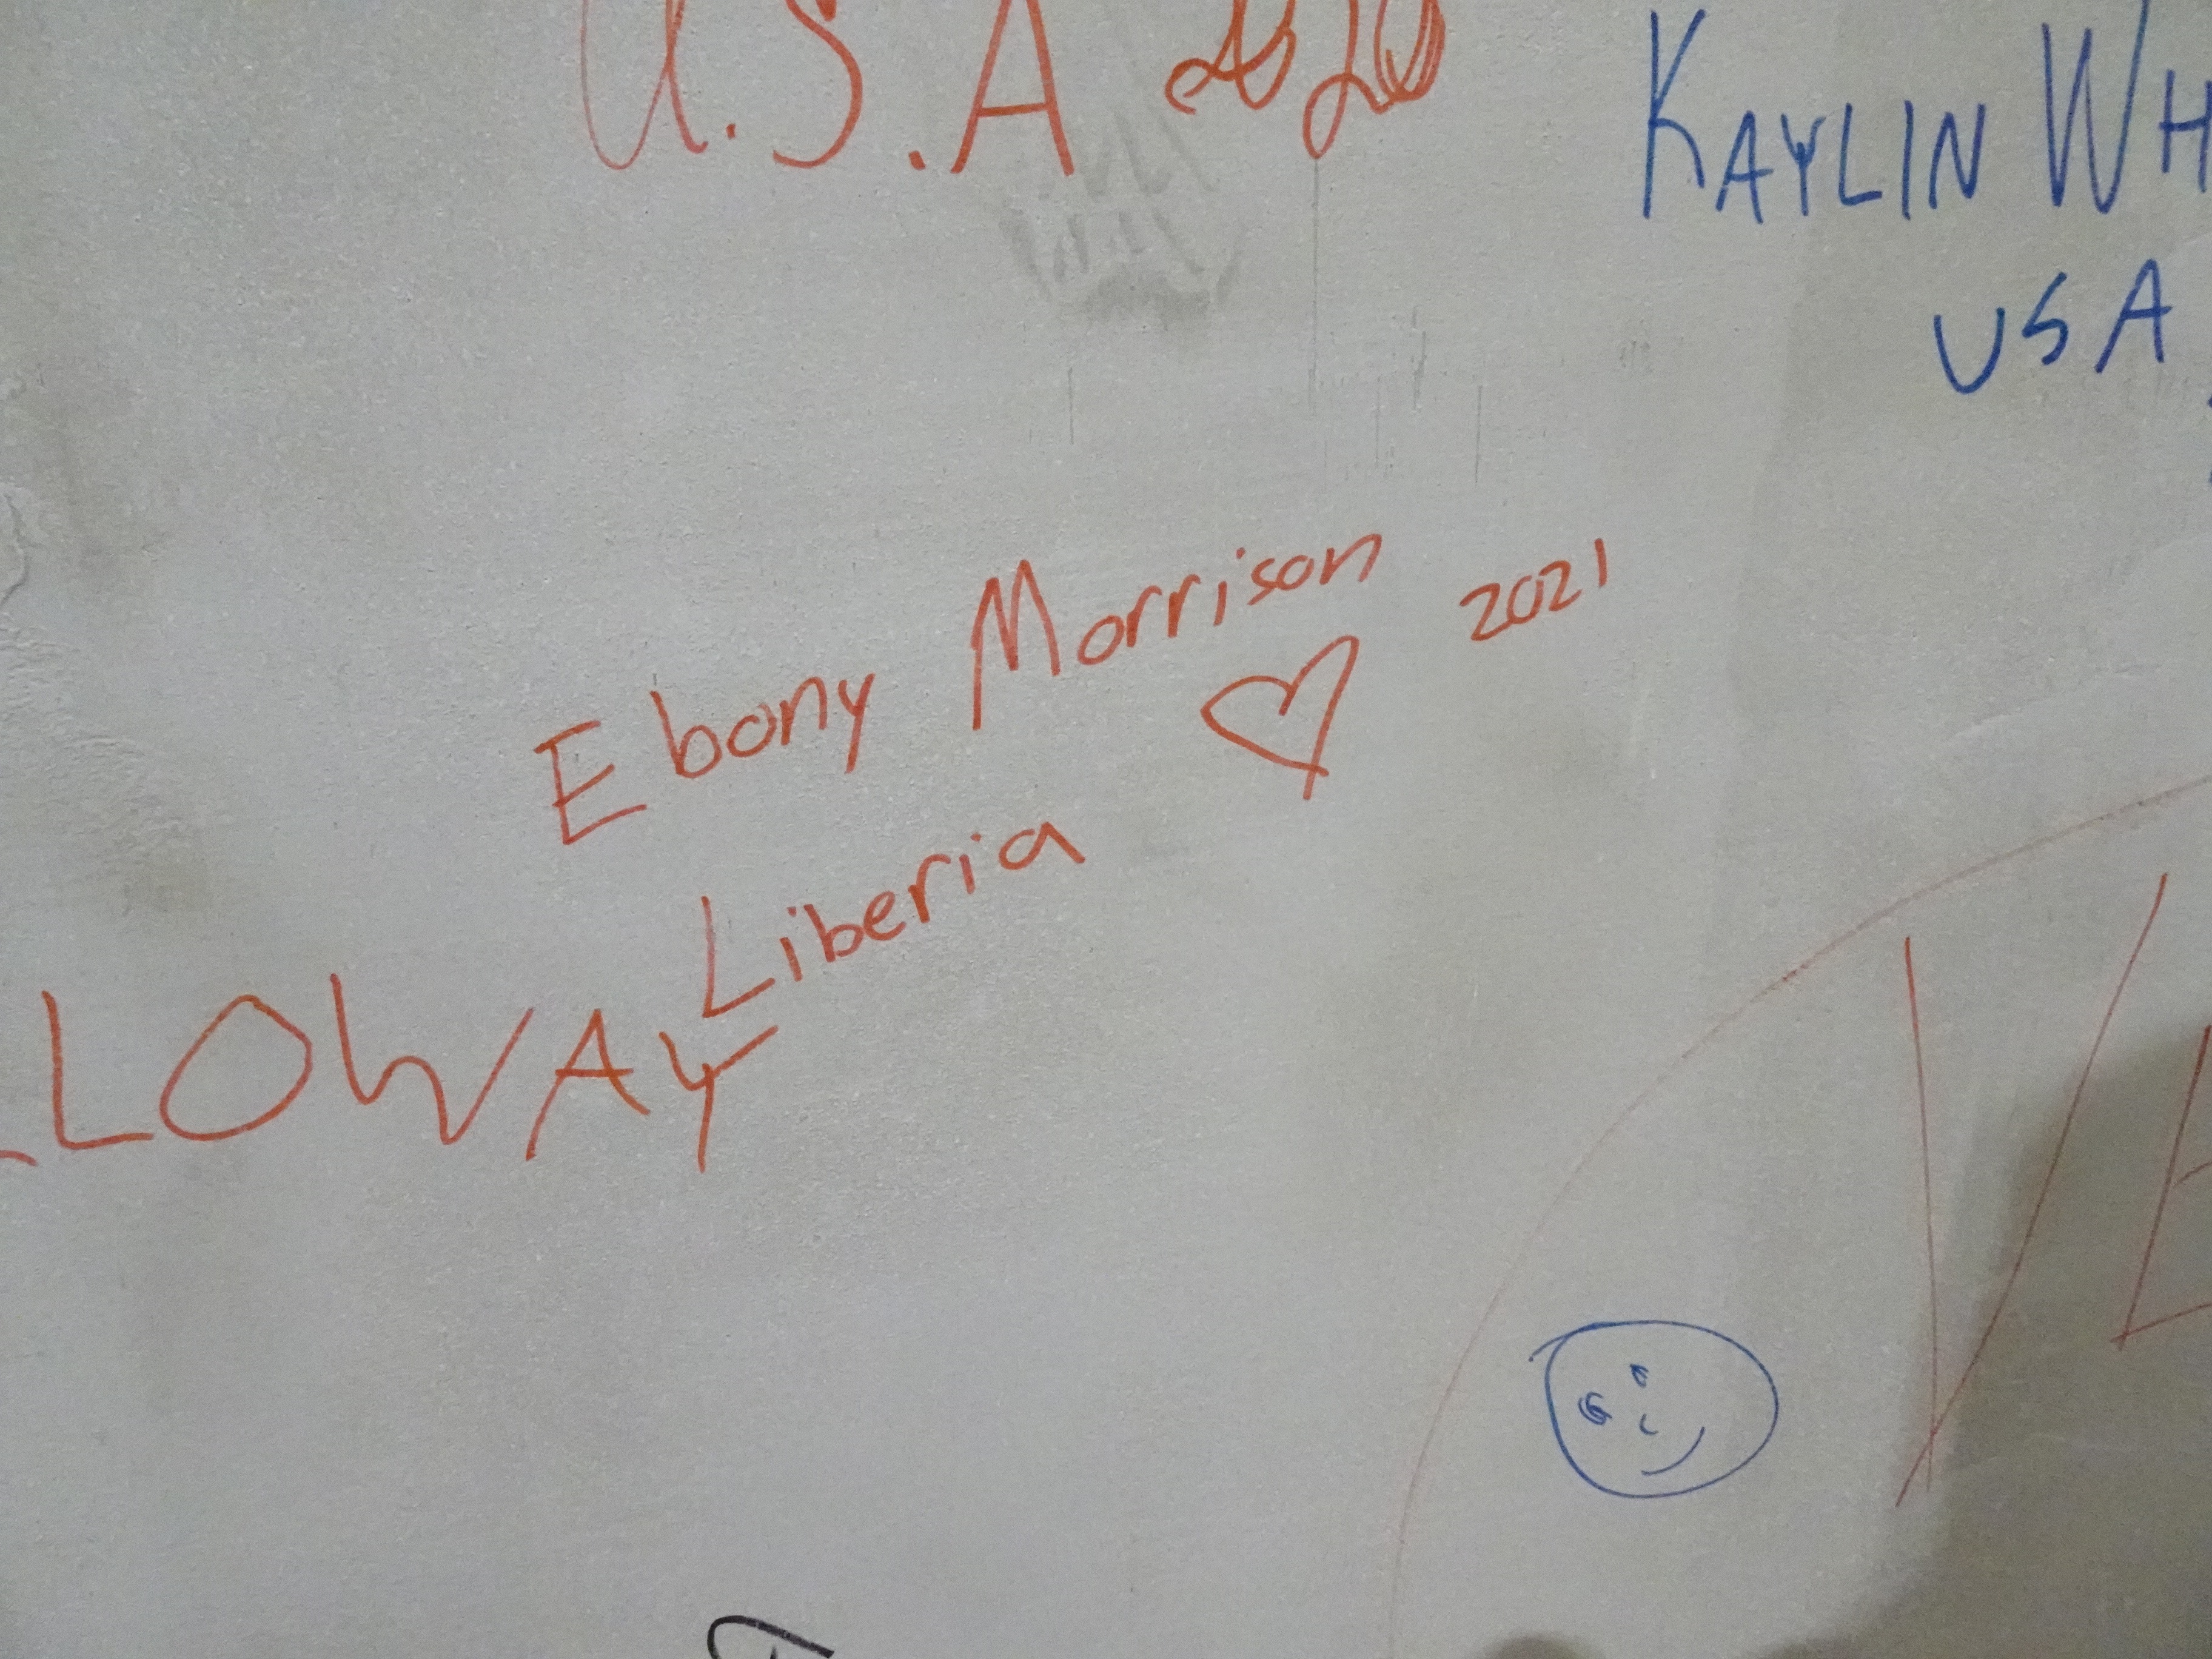 U.S.A
KAYLIN WH
USA
Ebony Morrison 2021
Liberia
LOWAY
VE